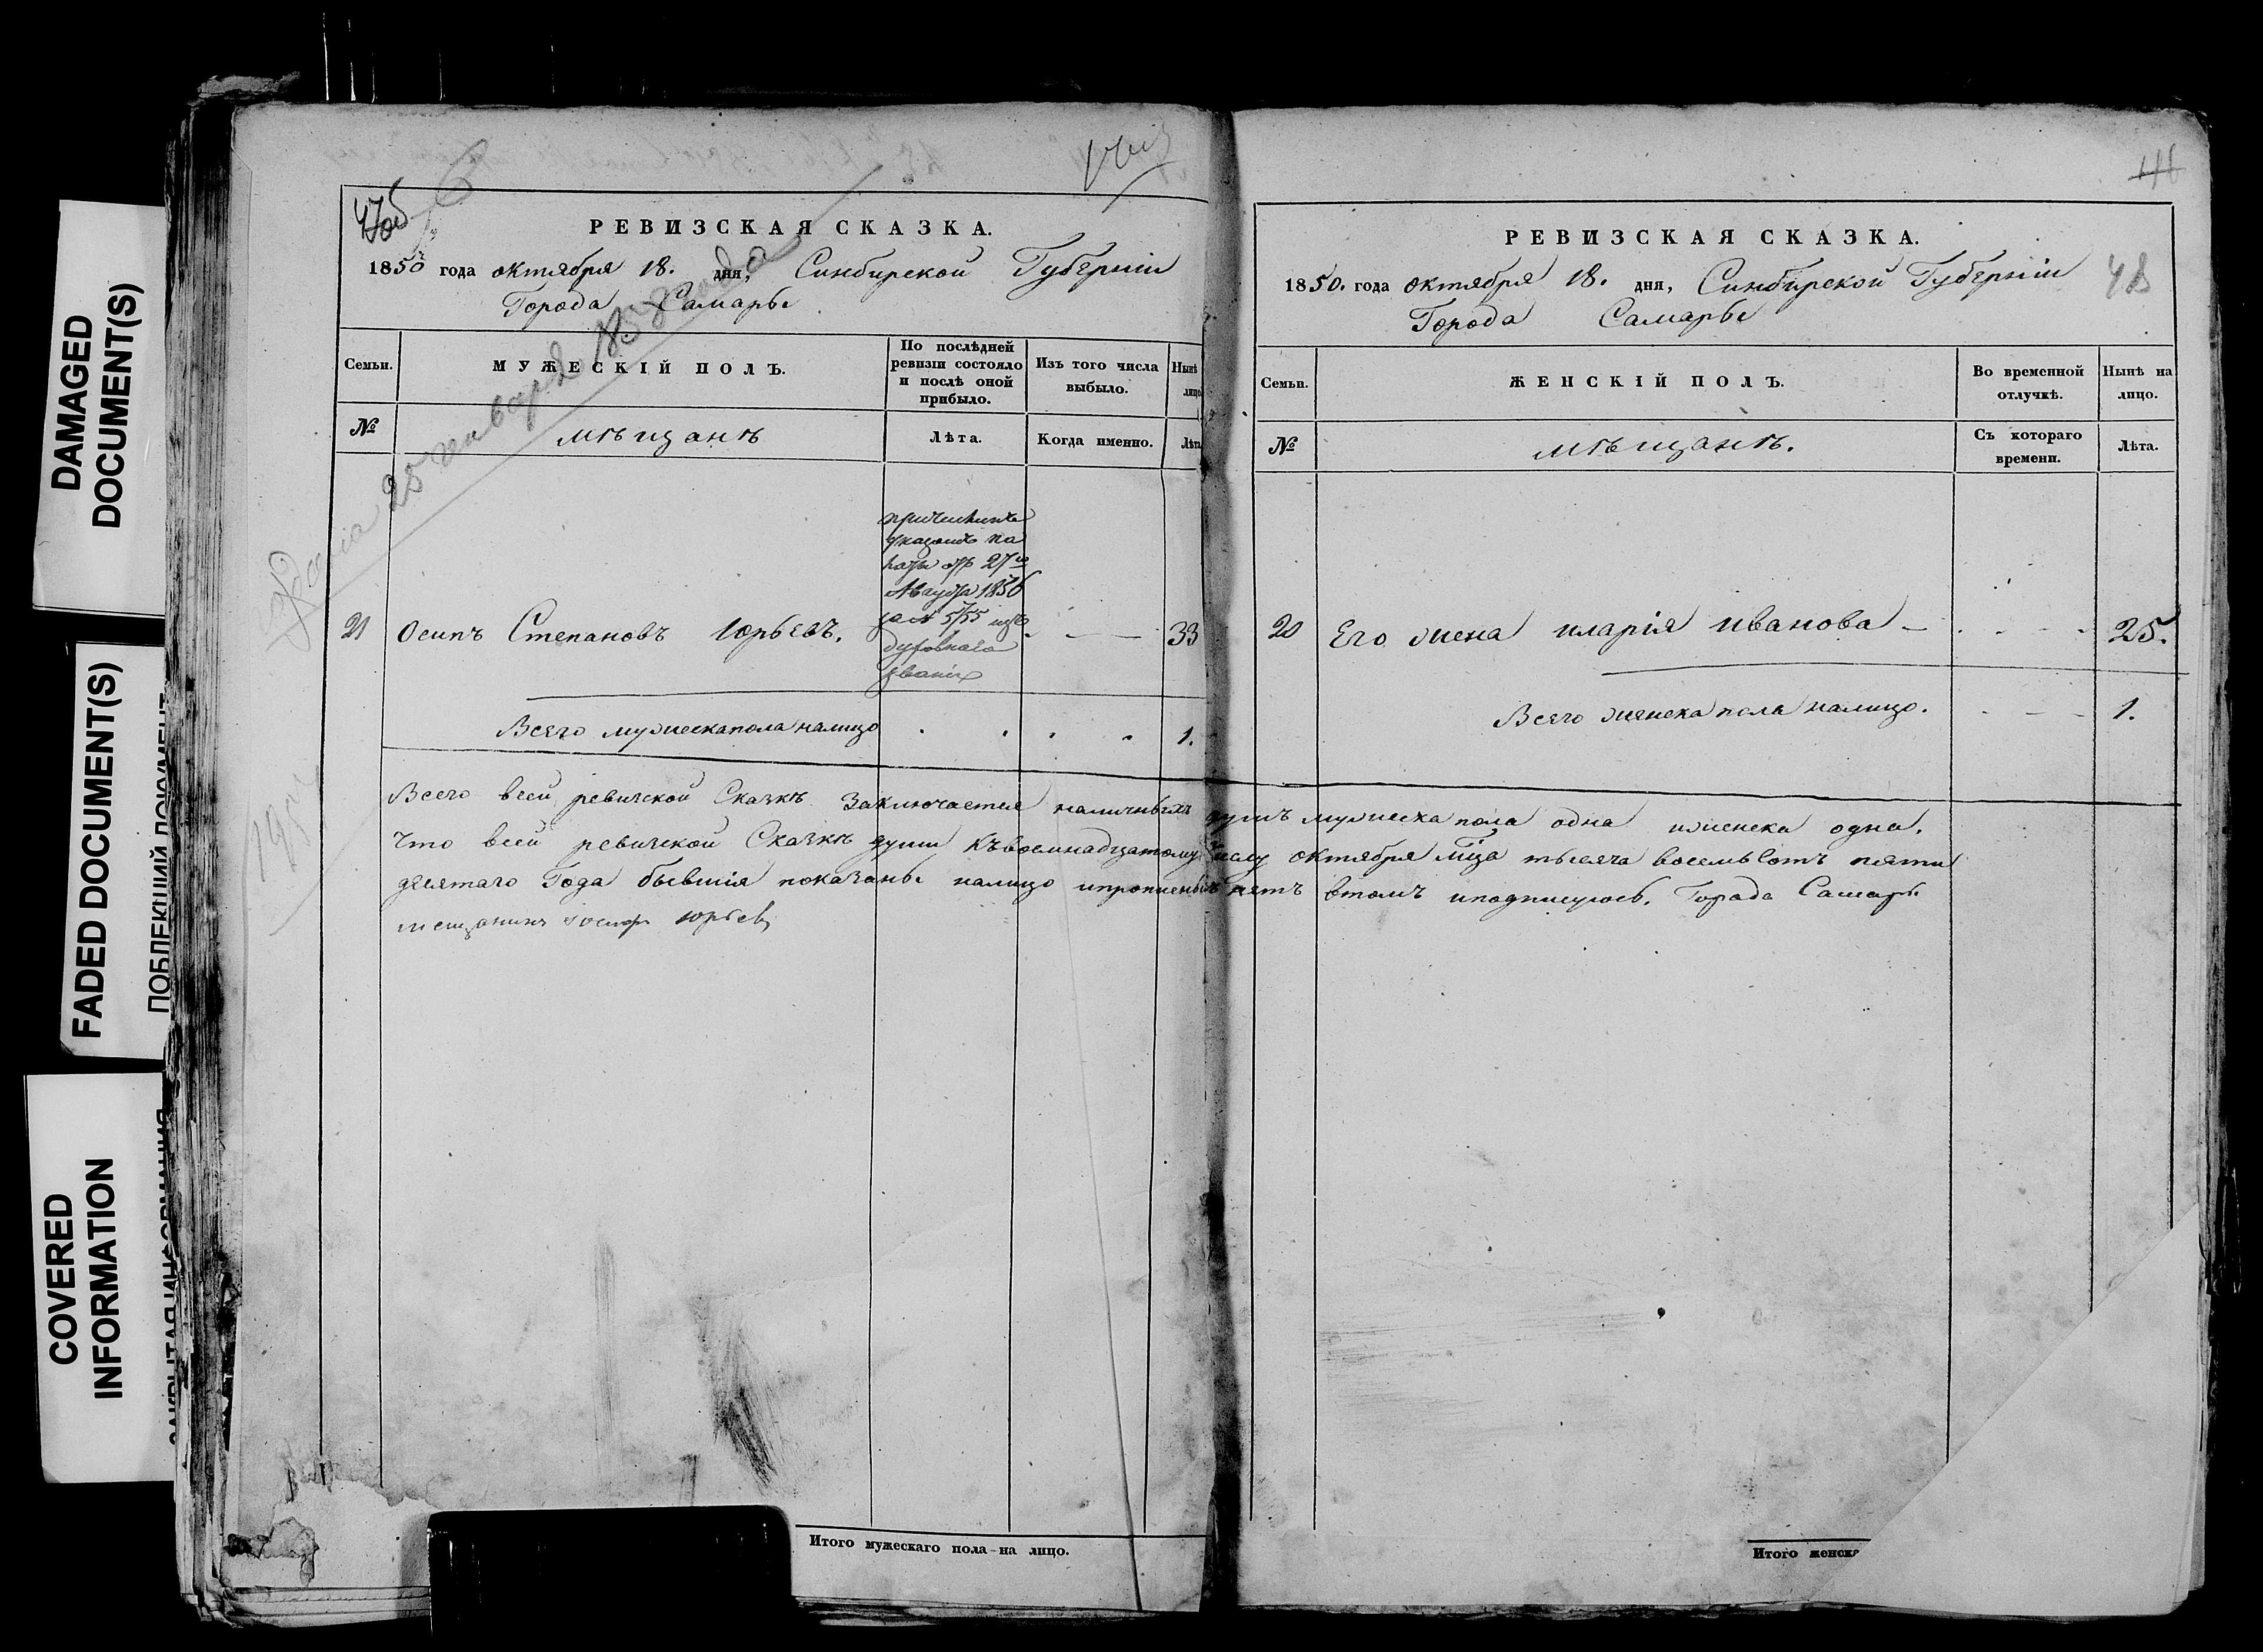 DAMAGED
DOCUMENT(S)
FADED DOCUMENT(S)
COVERED
INFORMATION
РЕВИЗСКАЯ СКАЗКА.
1850 года октября 18. дня, Синбирской Губернiи
Города Самары
Семьи.
МУЖЕСКIЙ ПОЛЪ.
По послѣдней
ревизiи состояло
и послѣ оной
прибыло.
Изъ того числа
выбыло.
Нынѣ
лицо
№
мѣщанъ
Лѣта.
Когда именно.
Лѣта
21 Осипъ Степановъ Юрьевъ.
причисленъ
указомъ па
латы отъ 27го
Августа 1836
за № 5755 изъ
духовнаго
званiя
33
Всего мужескапола налицо 1.
Итого мужескаго пола на лицо.
РЕВИЗСКАЯ СКАЗКА.
1850. года октября 18. дня, Синбирской Губернiи
48
Города Самары
Семьи.
ЖЕНСКIЙ ПОЛЪ.
Во временной
отлучкѣ.
Нынѣ на
лицо.
№
мѣщанъ.
Съ котораго
времени.
Лѣта.
20 Его жена марiя иванова 25.
Всего женска пола налицо. 1.
Всего всей ревиской Сказкѣ заключается наличныхъ душъ мужеска пола одна иженска одна.
что всей ревиской Сказкѣ души къвосмнадцатому числу октября мца тысяча восемьсотъ пяти
десятаго Года бывшiя показаны налицо ипрописныхъ нѣтъ втомъ иподписуюсь. Города Самары
мещанинъ иосиф юрьев
Итого женска